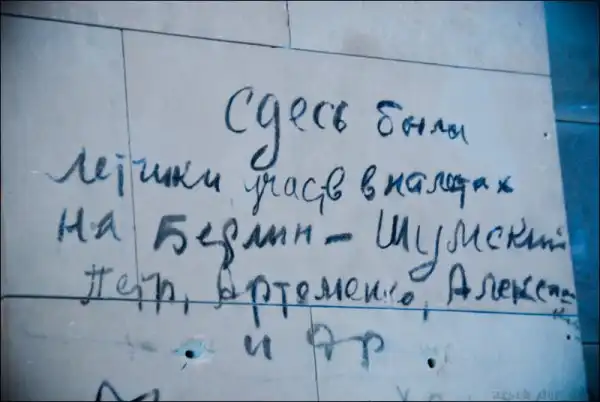 Сдесь были
летчики участв в налетах
на Берлин - Шумский
Петр, Артеменко, Алекса
и др